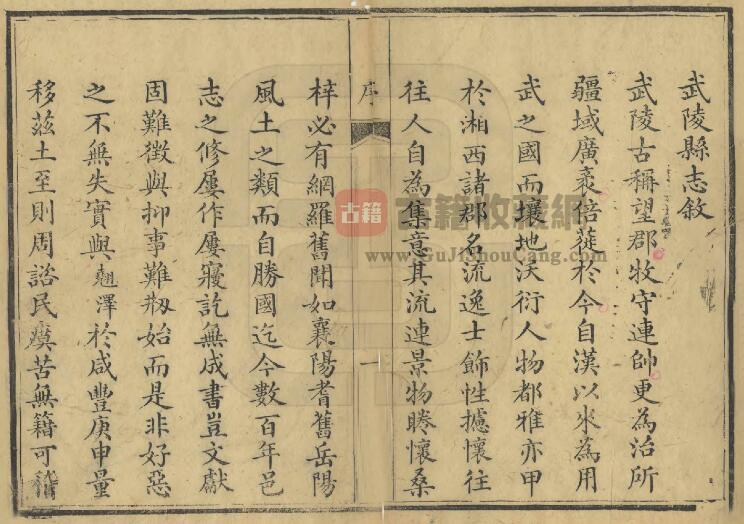 武陵縣志敘
武陵古稱望郡牧守連帥更為治所
疆域廣袤倍蓰於今自漢以來為用
武之國而壤地沃衍人物都雅亦甲
於湘西諸郡名流逸士飾性攄懷往
往人自為集意其流連景物睠懷桑
序
一
梓必有網羅舊聞如襄陽耆舊岳陽
風土之類而自勝國迄今數百年邑
志之修屢作屢寢訖無成書豈文獻
固難徵與抑事難刱始而是非好惡
之不無失實與翹澤於咸豐庚申量
移茲土至則周諮民瘼苦無籍可稽
古籍
古籍收藏網
www.GuJiShouCang.com